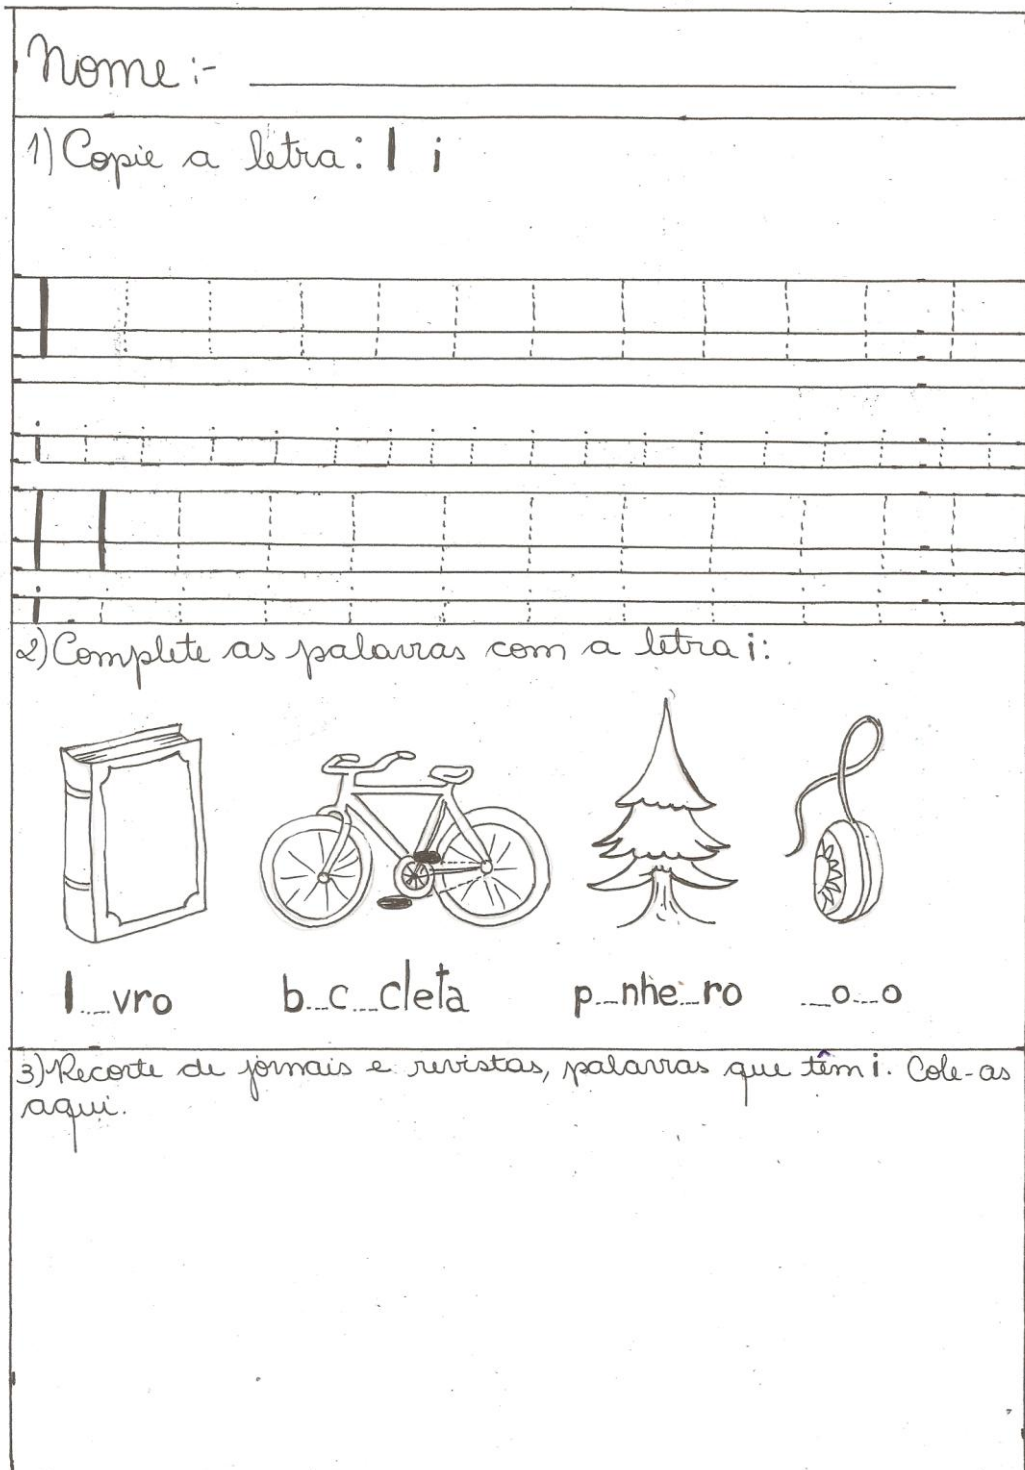 Nome:- ____________________
1) Copie a letra: I i
I
i
I I
i
2) Complete as palavras com a letra i:
l__vro b__c__cleta p__nhe__ro __o__o
3) Recorte de jornais e revistas, palavras que têm i. Cole-as
aqui.